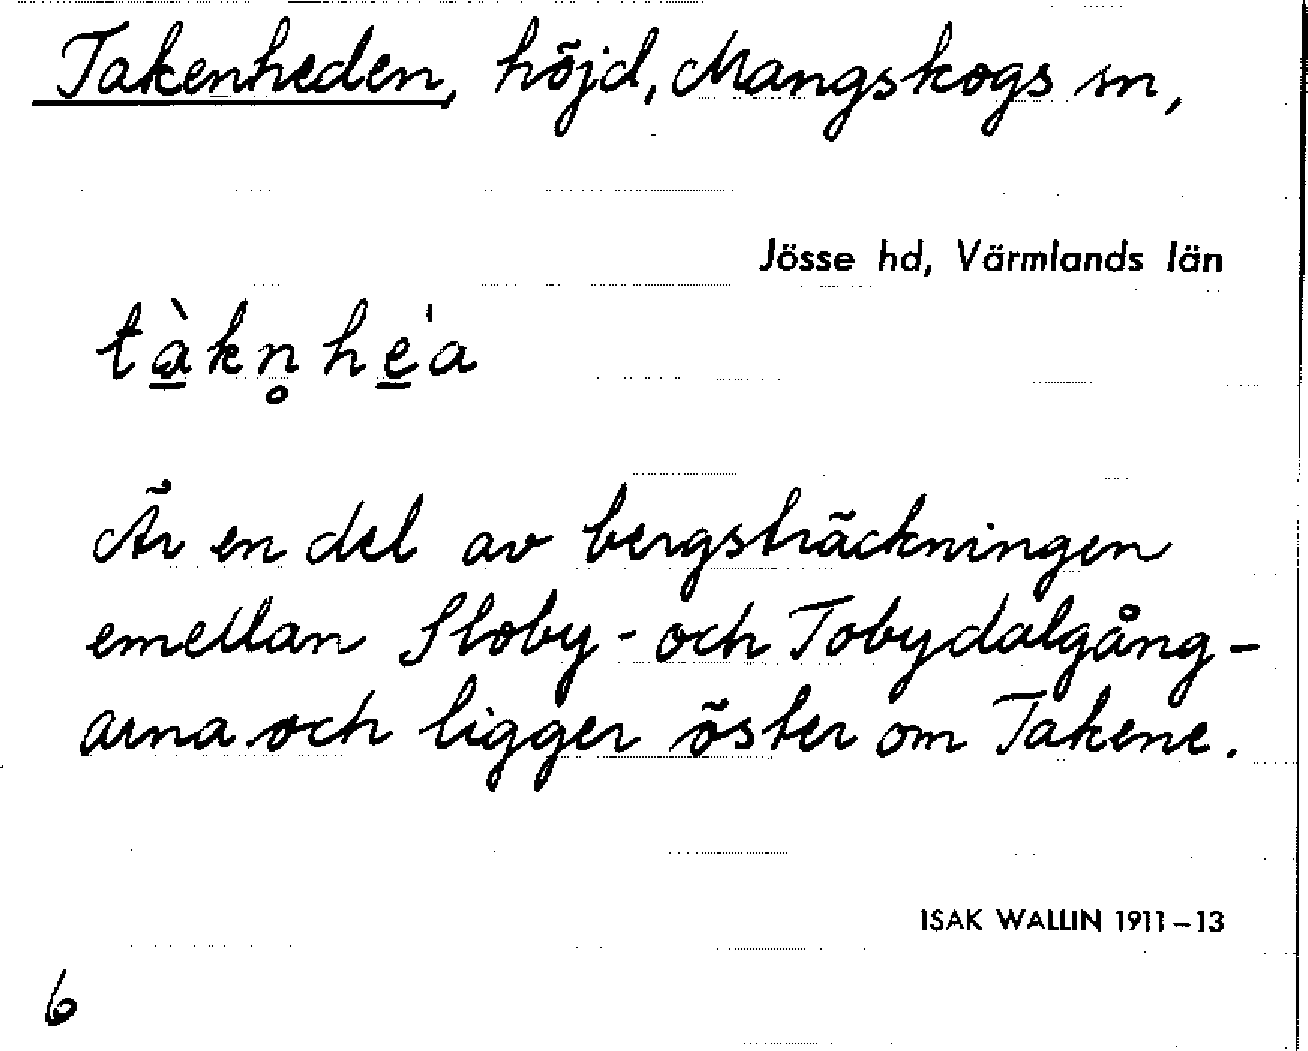 Takenheden, höjd, Mangskogs sn,
Jösse hd, Värmlands län
tàkn̥he̱'a
Är en del av bergsträckningen
emellan Sloby- och Tobydalgång-
arna och ligger öster om Takene.
ISAK WALLIN 1911–13
6